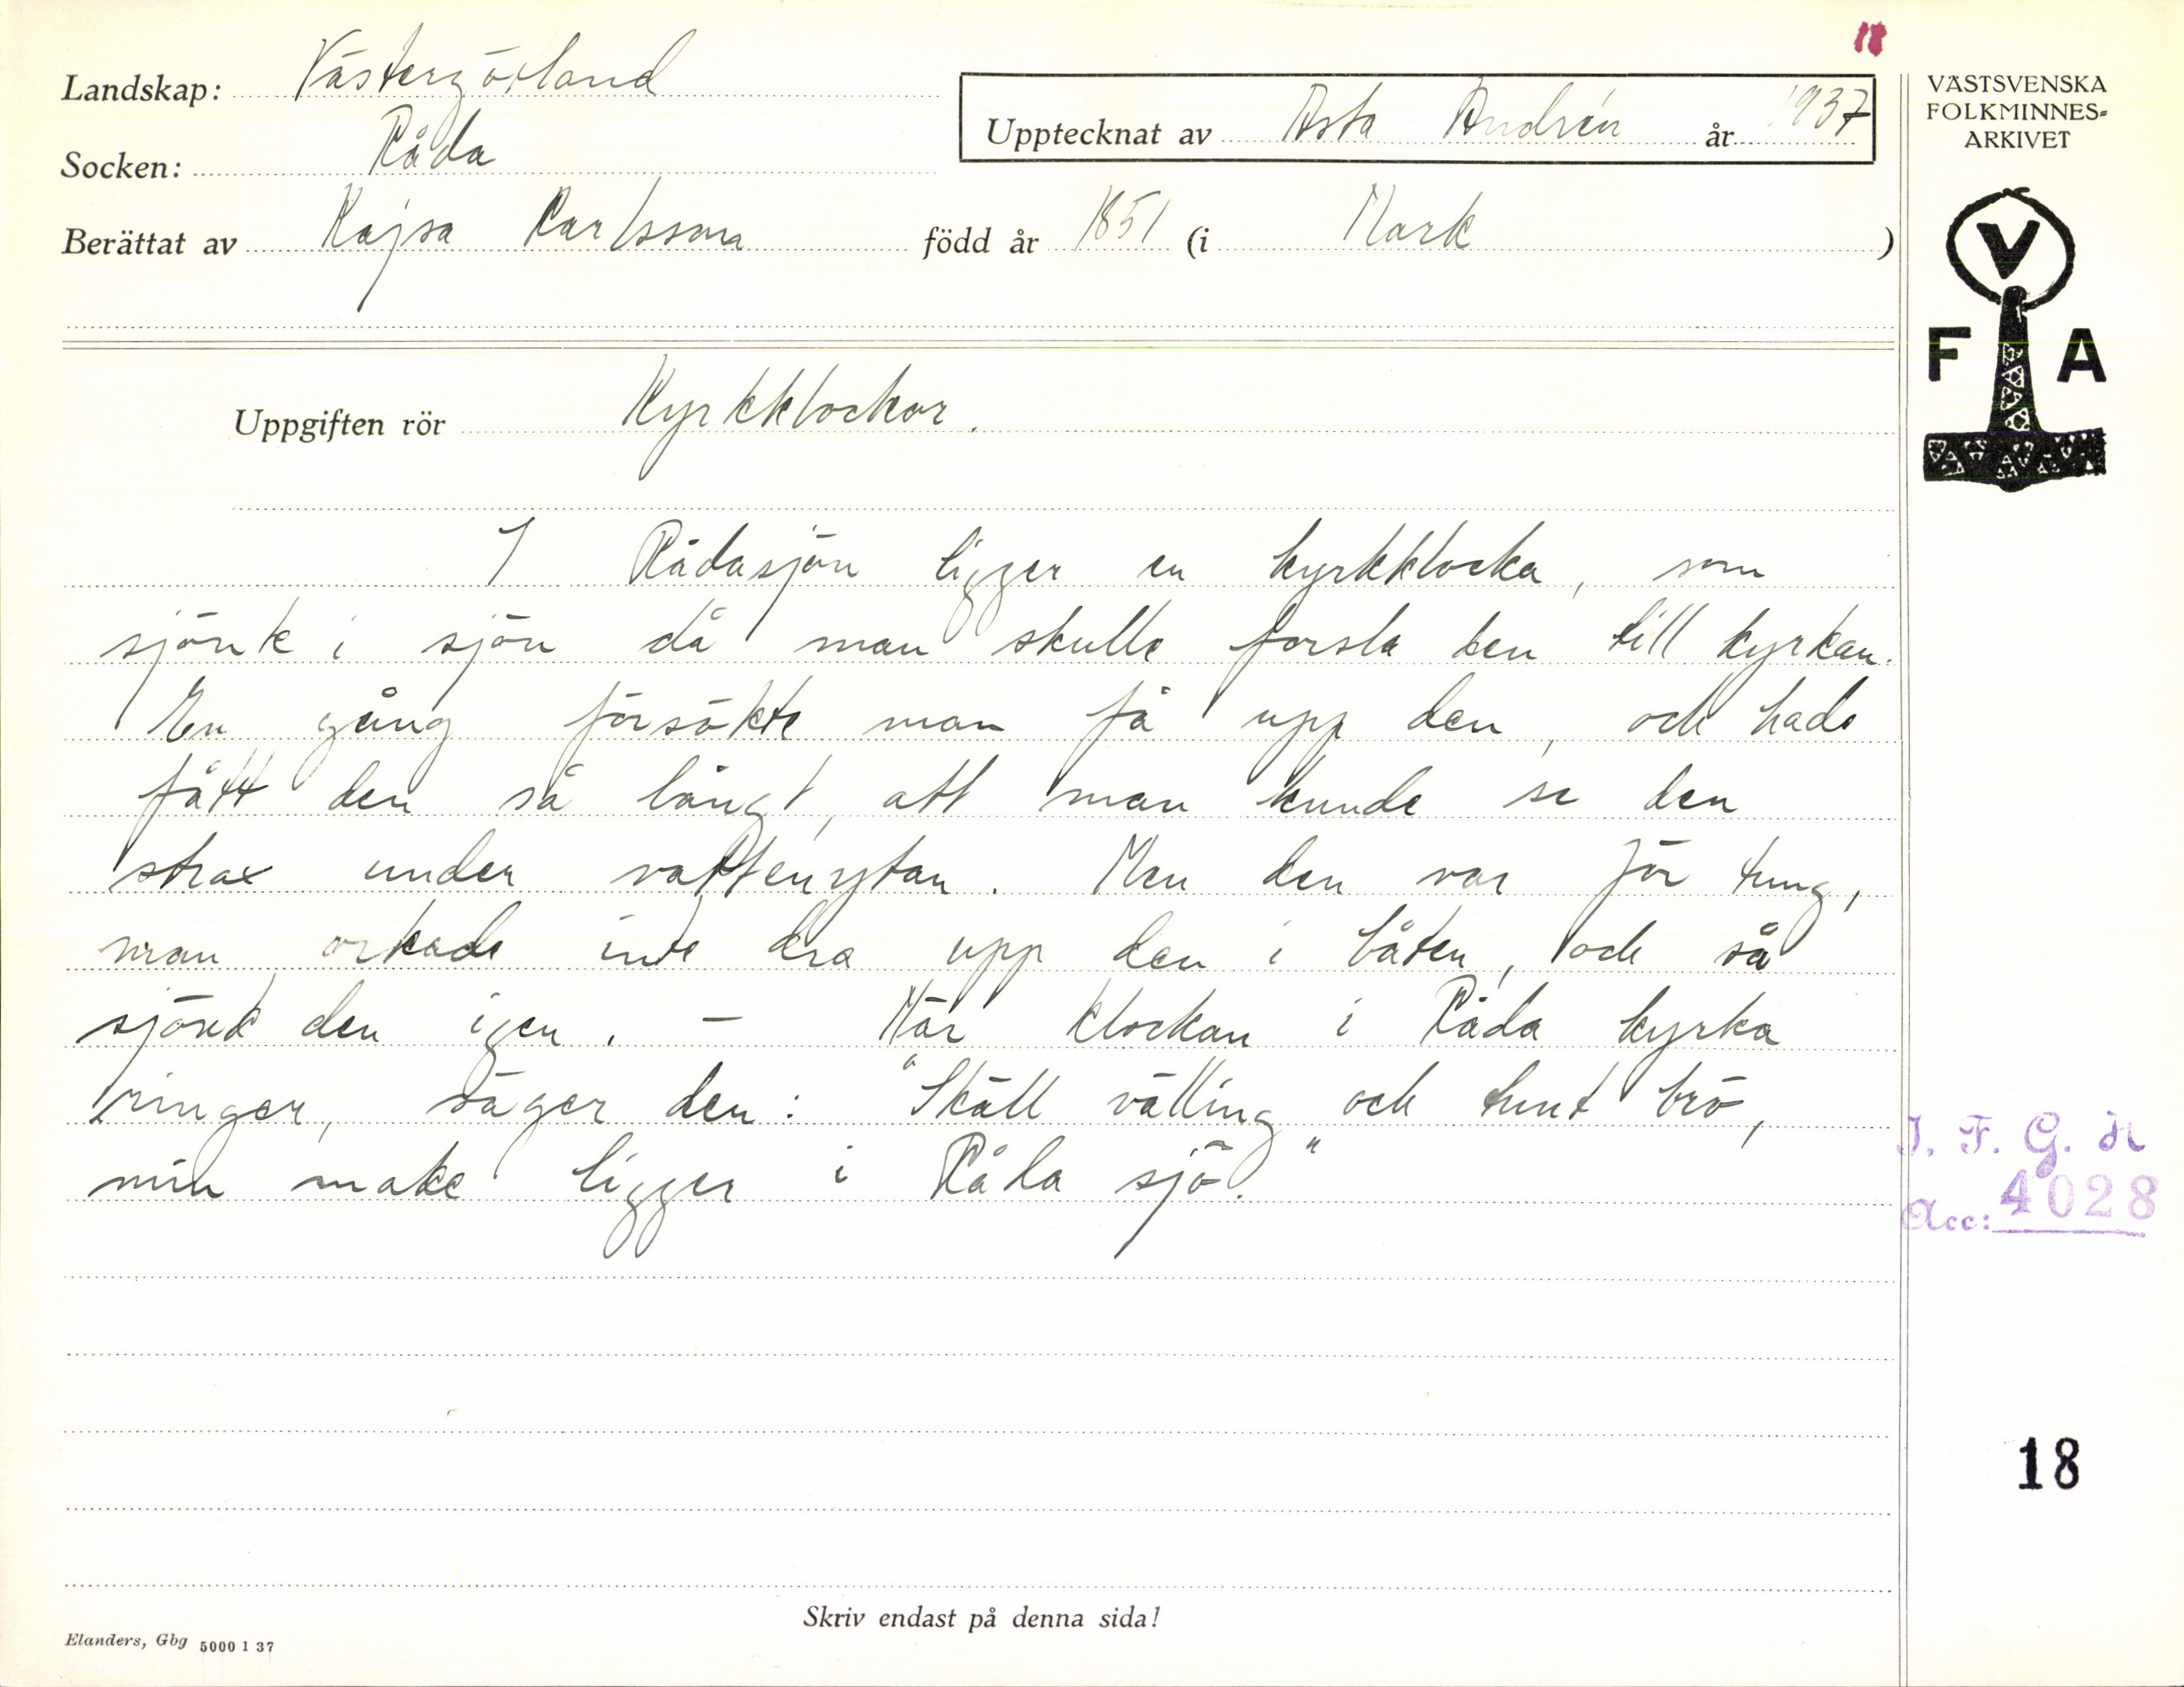 18
Landskap: Västergötland
Upptecknat av Asta Andrén år 1937
Socken: Råda
Berättat av Kajsa Karlsson född år 1851 (i Mark)
VÄSTSVENSKA
FOLKMINNES-
ARKIVET
V
F A
Uppgiften rör Kyrkklockor.
I Rådasjön ligger en kyrkklocka, som
sjönk i sjön då man skulle forsla den till kyrkan.
En gång försökte man få upp den, och hade
fått den så långt, att man kunde se den
strax under vattenytan. Men den var för tung,
man orkade inte dra upp den i båten, och så
sjönk den igen. – När klockan i Råda kyrka
ringer, säger den: "Skäll välling och tunt brö,
min make ligger i Råda sjö."
I. F. G. H
Acc: 4028
18
Skriv endast på denna sida!
Elanders, Gbg 5000 1 37